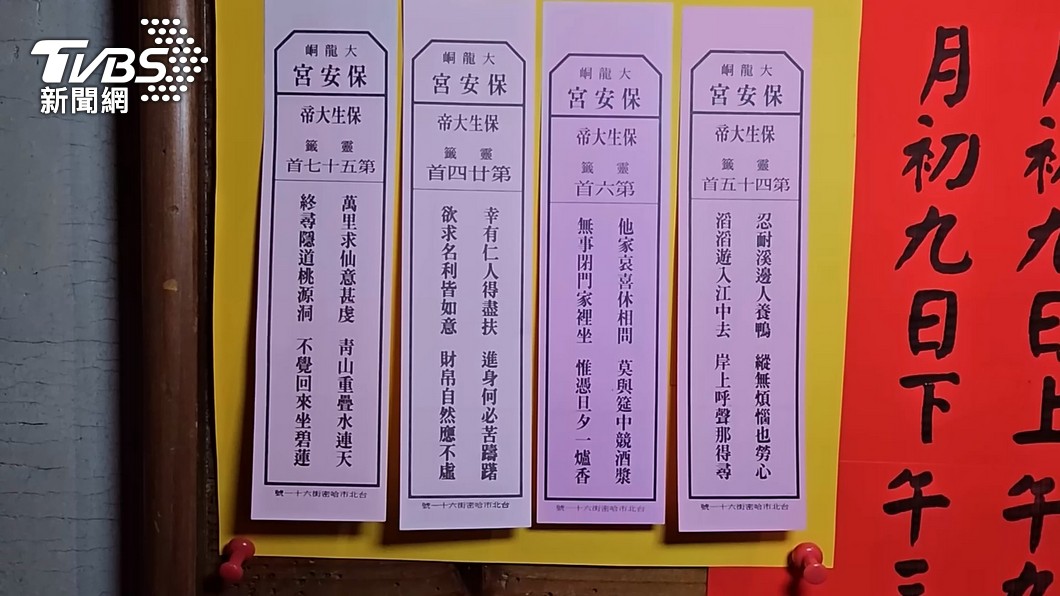 TVBS
新聞網
大龍峒
保安宮
保生大帝
靈籤
第五十七首
萬里求仙意甚虔 青山重疊水連天
終尋隱道桃源洞 不覺回來坐碧蓮
台北市哈密街六十一號
大龍峒
保安宮
保生大帝
靈籤
第廿四首
幸有仁人得盡扶 進身何必苦躊躇
欲求名利皆如意 財帛自然應不虛
台北市哈密街六十一號
大龍峒
保安宮
保生大帝
靈籤
第六首
他家哀喜休相問 莫與筵中競酒漿
無事閉門家裡坐 惟憑日夕一爐香
台北市哈密街六十一號
大龍峒
保安宮
保生大帝
靈籤
第四十五首
忍耐溪邊人養鴨 縱無煩惱也勞心
滔滔遊入江中去 岸上呼聲那得尋
台北市哈密街六十一號
月初九日上午九
月初九日下午三